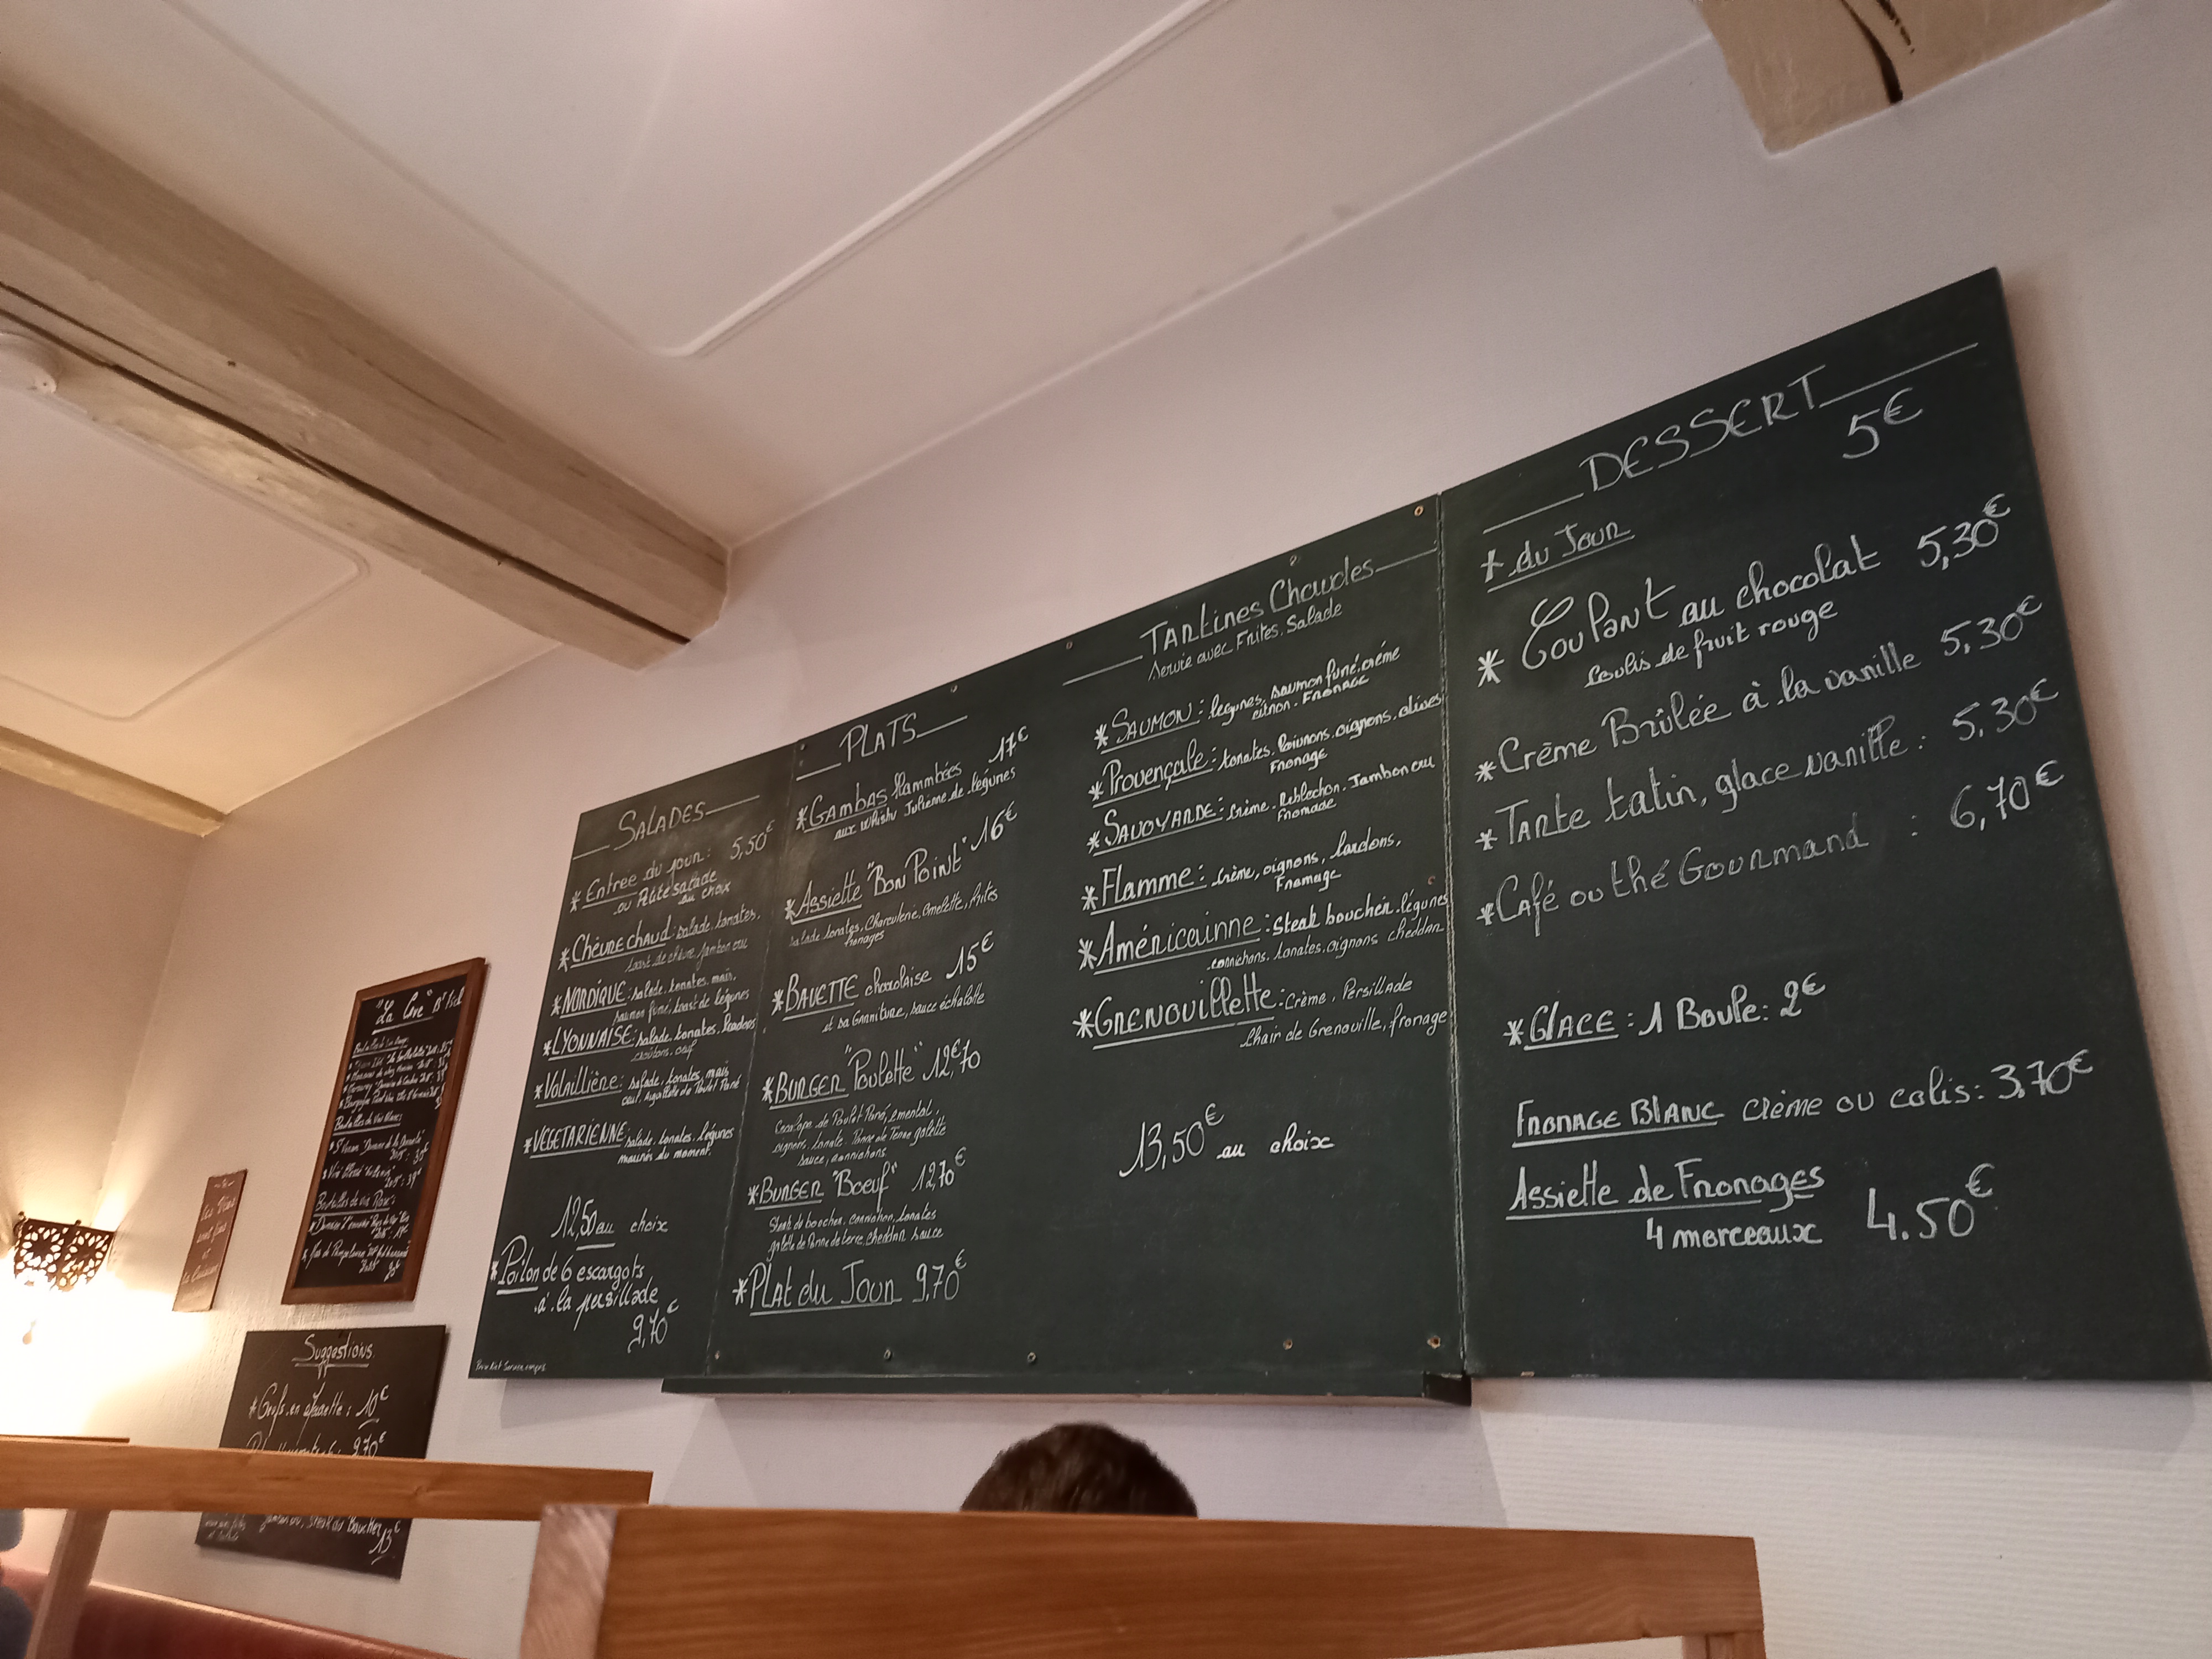 SALADES
* Entrée du jour : 5,50€
ou Pâté salade
au choix
* Chèvre chaud : salade, tomates,
toast de chèvre, jambon cru
* NORDIQUE : salade, tomates, maïs,
saumon fumé, toast de légumes
* LYONNAISE : salade, tomates, lardons
croûtons, oeuf
* Volaillière : salade, tomates, maïs
oeuf, Aiguillette de Poulet Pané
* VEGETARIENNE : salade, tomates, légumes
marinés du moment.
12,50 au choix
* Poilon de 6 escargots
à la persillade
9,70€
PLATS
* GAMBAS flammbées 17€
aux Whisky Julienne de légumes
* Assiette "Bon Point" 16€
salade tomates, Charcuterie, Omelette, frites
fromages
* BAVETTE charolaise 15€
et sa Garniture, sauce échalotte
* BURGER "Poulette" 12€70
Escalope de Poulet Pané, emental,
oignons, tomate, Pomme de Terre galette
sauce, cornichons
* BURGER "Boeuf" 12,70€
Steak de boucher, cornichon, tomates
galette de Pomme de terre, cheddar sauce
* PLAT du Jour 9,70€
TARtines Chaudes
Servie avec Frites, Salade
* SAUMON : légumes, saumon fumé, crème
citron - Fromage
* Provençale : tomates, Poivrons, oignons, olives
Fromage
* SAVOYARDE : Crème - Reblochon, Jambon cru
Fromade
* Flamme : Crème, oignons, lardons,
Fromage
* Américainne : Steak boucher, légumes
cornichons, tomates, oignons cheddar
* GRENOUILLETTE : Crème, Persillade
Chair de Grenouille, fromage
13,50€ au choix
DESSERT
5€
* du Jour
* Coulant au chocolat 5,30€
Coulis de fruit rouge
* Crème Brûlée à la vanille 5,30€
* TARte tatin, glace vanille : 5,30€
* Café ou thé Gourmand : 6,70€
* GLACE : 1 Boule : 2€
FROMAGE BLANC crème ou colis : 3,70€
Assiette de Fromages
4 morceaux 4.50€
"La Cave"
Suggestions
* en : 10€
9,70€
Steak du Boucher
13€